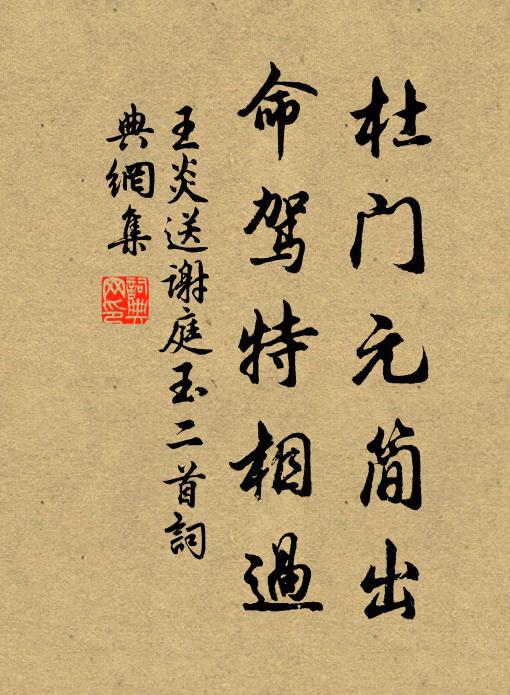 杜门元简出
命驾特相過
王炎送謝庭玉二首詞
典網集
詞典
网印